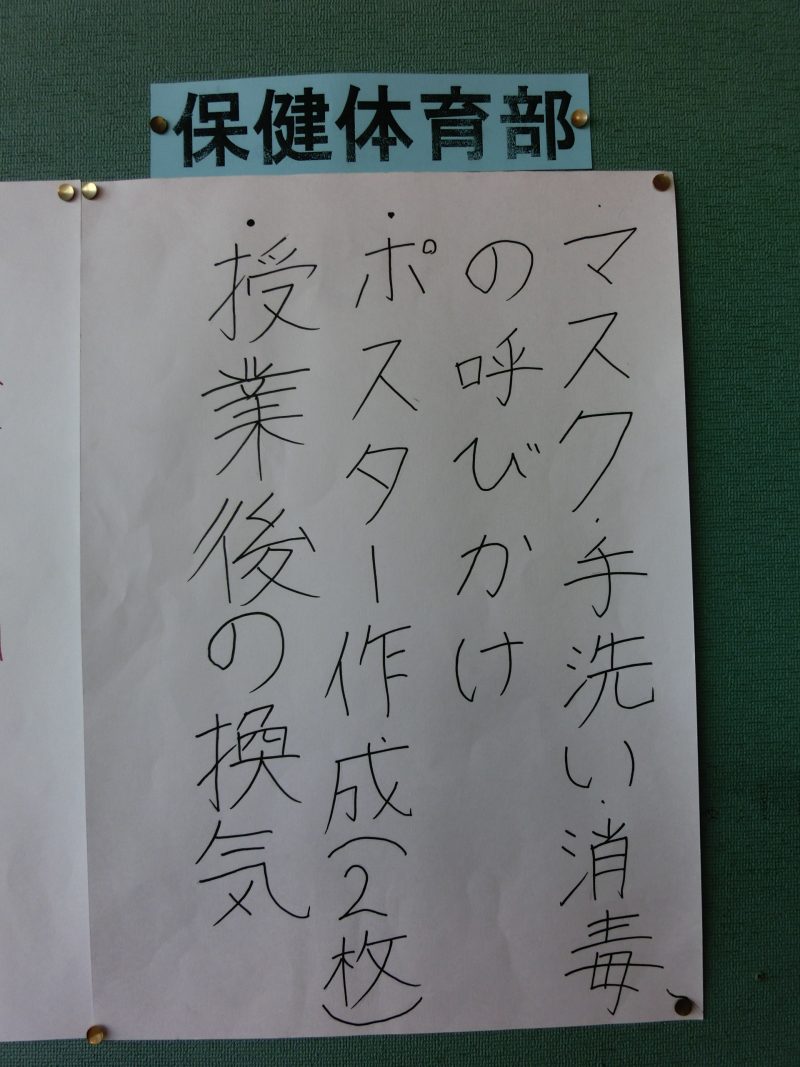 保健体育部
・マスク・手洗い・消毒、
の呼びかけ
・ポスター作成(2枚)
・授業後の換気